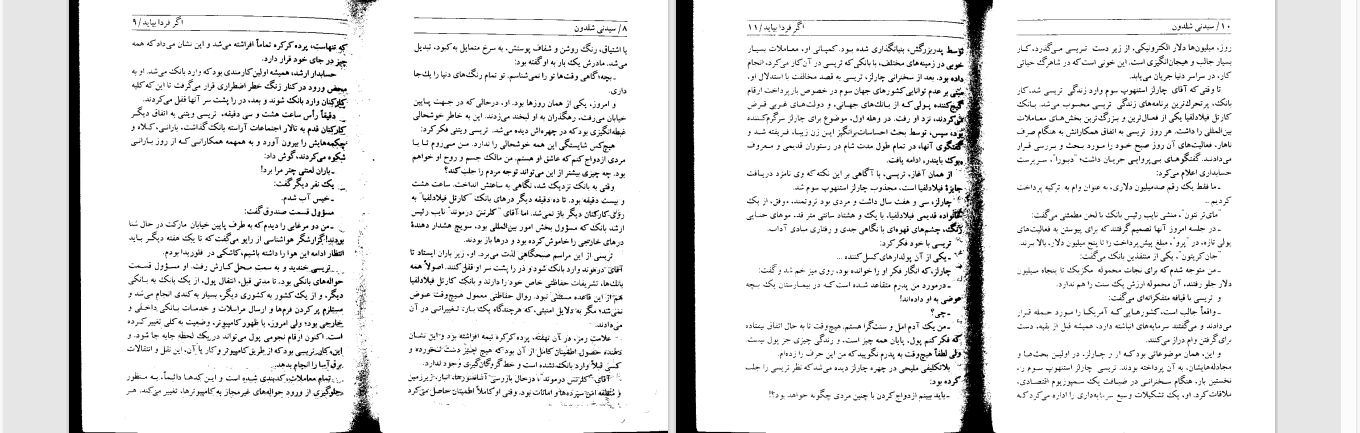 ۸/ سیدنی شلدون
با اشتیاق، رنگ روشن و شفاف پوستش، به سرخ متمایل به‌کبود، تبدیل
می‌شد. مادرش یک بار به او‌گفته بود:
ـ بچه، گاهی وقت‌ها تو را نمی‌شناسم. تو تمام رنگ‌های دنیا را یك‌جا
داری.
و امروز، یکی از همان روزها بود. او، درحالی که در جهت پایین
خیابان می‌رفت، رهگذران به او لبخند می‌زدند. این به خاطر خوشحالی
غبطه‌انگیزی بودکه در چهره‌اش دیده می‌شد. تریسی ویتنی فکر کرد:
هیچ‌کس شایستگی این همه خوشحالی را ندارد. من می‌روم تا با
مردی ازدواج کنم که عاشق او هستم. من مالک جسم و روح او خواهم
بود. چه چیزی بیشتر از این می‌تواند توجه مردم را جلب کند؟
وقتی به بانک نزدیک شد، نگاهی به ساعتش انداخت. ساعت هشت
و بیست دقیقه بود. تا ده دقیقه دیگر درهای بانک «کارتل فیلادلفیا» به
روی کارکنان دیگر باز نمی‌شد. اما آقای "کلرتنس درموند" نایب رئیس
ارشد بانک که مسؤول بخش امور بین‌المللی بود، سویچ هشدار دهندهٔ
درهای خارجی را خاموش کرده بود و درها باز بودند.
تریسی از این مراسم صبحگاهی لذت می‌برد. او، زیر باران ایستاد تا
آقای درموند وارد بانک شود و در را پشت سر او قفل کنند. اصولاً همه
بانک‌ها، تشریفات حفاظتی خاص خود را دارند و بانک کارتل فیلادلفیا
هم از این قاعده مستثنی نبود. روال حفاظتی معمول هیچ‌وقت عوض
نمی‌شد؛ مگر به دلایل امنیتی، که هرچندگاه یکبار، تغییراتی در آن
می‌دادند.
علامت رمز، در آن نهفته، پرده کرکره نیمه افراشته بود و این نشان
دهنده حصول اطمینان کامل از آن بود که هیچ چیز دست نخورده و
کسی قبلاً وارد بانک نشده است و خط گروگان‌گیری وجود ندارد.
آقای "کلرتنس درموند" تا درحال بازرسی انبار، زیرزمین
و منطقه امن سپرده‌ها و امانات بود. وقتی او کاملاً اطمینان حاصل می‌کرد
اگر فردا بیاید /۹
که تنهاست، پرده کرکره تماماً افراشته می‌شد و این نشان می‌داد که همه
چیز در جای خود قرار دارد.
حسابدار ارشد، همیشه اولین کارمندی بود که وارد بانک می‌شد. او به
محض ورود در کنار زنگ خطر اضطراری قرار می‌گرفت تا این که کلیه
کارکنان وارد بانک شوند و بعد، در را پشت سر آنها قفل می‌کردند.
دقیقاً رأس ساعت هشت و سی دقیقه، تریسی ویتنی به اتفاق دیگر
کارکنان قدم به تالار اجتماعات آراسته بانک گذاشت، بارانی، کلاه و
چکمه‌هایش را بیرون آورد و به همهمه همکارانسی که از روز بارانی
شکوه می‌کردند، گوش داد:
ـ باران لعنتی چتر مرا برد!
یک نفر دیگر گفت:
ـ خیس آب شدم.
مسؤول قسمت صندوق گفت:
ـ من دو مرغابی را دیدم که به طرف پایین خیابان مارکت در حال شنا
بودند! گزارشگر هواشناسی از رایو می‌گفت که تا یک هفته دیگر باید
انتظار ادامه این هوا را داشته باشیم، کاشکی در فلوریدا بودم.
تریسی خندید و به سمت محل کارش رفت. او مسؤول قسمت
حواله‌های بانکی بود. تا مدتی قبل، انتقال پول، از یک بانک به بانکی
دیگر، و از یک کشور به کشوری دیگر، بسیار به‌کندی انجام می‌شد و
مستلزم پر کردن فرم‌ها و ارسال مراسلات و خدمات بانکی داخلی و
خارجی بود؛ ولی امروز، با ظهور کامپیوتر، وضعیت به کلی تغییر کرده
است. اکنون ارقام نجومی پول می‌تواند در یک لحظه جابه جا شود. و
این، کار تریسی بود که از طریق کامپیوتر و کار با آن، این نقل و انتقالات
برق‌آسا را انجام بدهد.
تمام معاملات، کدبندی شده است و این کدها دائماً، به منظور
جلوگیری از ورود حواله‌های غیرمجاز به کامپیوترها، تغییر می‌کند. هر
۱۰/ سیدنی شلدون
روز، میلیون‌ها دلار الکترونیکی، از زیر دست تریسی می‌گذرد. کار
بسیار جالب و هیجان‌انگیزی است. این خونی است که در شاهرگ حیاتی
کار، در سراسر دنیا جریان می‌یابد.
تا وقتی که آقای چارلز استنهوپ سوم وارد زندگی تریسی شد، کار
بانک، پرتحرک‌ترین برنامه‌های زندگی تریسی محسوب می‌شد. بانک
کارتل فیلادلفیا یکی از فعال‌ترین و بزرگ‌ترین بخش‌های معاملات
بین‌المللی را داشت. هر روز تریسی به اتفاق همکارانش به هنگام صرف
ناهار، فعالیت‌های آن روز صبح خود را مورد بحث و بررسی قرار
می‌دادند. گفتگوهای بی‌پروایی جریان داشت؛ "دبورا"، سرپرست
حسابداری اعلام می‌کرد:
ـ ما فقط یک رقم صدمیلیون دلاری، به عنوان وام به ترکیه پرداخت
کردیم ..
"مای‌ترنتون"، منشی نایب رئیس بانک با لحن مطمئنی می‌گفت:
ـ در جلسه امروز آنها تصمیم گرفتند که برای پیوستن به فعالیت‌های
پولی تازه، در "پرو"، مبلغ پیش‌پرداخت را تا پنج میلیون دلار، بالا ببرند.
"جان کریتون"، یکی از متنفذین بانک می‌گفت:
ـ من متوجه شدم که برای نجات محموله مکزیک تا پنجاه میلیون
دلار جلو رفتند، آن محموله ارزش یک سنت را هم ندارد.
و تریسی با قیافه متفکرانه‌ای می‌گفت:
ـ واقعاً جالب است، کشورهایی که آمریکا را مورد حمله قرار
می‌دادند و می‌گفتند سرمایه‌های انباشته دارد، همیشه قبل از بقیه، دست
برای گرفتن وام دراز می‌کنند.
و این، همان موضوعاتی بود که از چارلز، در اولین بحث‌ها و
مجادله‌هایشان، به آن پرداخته بودند. تریسی چارلز استنهوپ سوم را،
نخستین بار، هنگام سخنرانی در ضیافت یک سمپوزیوم اقتصادی،
ملاقات کرد. او، یک تشکیلات وسیع سرمایه‌داری را اداره می‌کرد که
اگر فردا بیاید /۱۱
توسط پدربزرگش، بنیانگذاری شده بود. کمپانی او، معاملات بسیار
خوبی در زمینه‌های مختلف، با بانکی که تریسی در آن کار می‌کرد، انجام
داده بود. بعد از سخنرانی چارلز، تریسی به قصد مخالفت با استدلال او،
مبنی بر عدم توانایی کشورهای جهان سوم در خصوص بازپرداخت ارقام
گیج‌کننده پولی که از بانک‌های جهانی، و دولت‌های غربی قرض
می‌کردند، نزد او رفت. در وهله اول، موضوع برای چارلز سرگرم‌کننده
بود، سپس، توسط بحث احساسات‌برانگیز این زن زیبا، فریفته شد و
گفتگوی آنها، در تمام طول مدت شام در رستوران قدیمی و معروف
بوک بایندر، ادامه یافت.
از همان آغاز، تریسی، با آگاهی بر این نکته که وی نامزد دریافت
جایزهٔ فیلادلفیا است، مجذوب چارلز استنهوپ سوم شد.
چارلز، سی و هفت سال داشت و مردی بود ثروتمند، موفق، از یک
خانواده قدیمی فیلادلفیا، با یک و هشتاد سانتی متر قد. موهای حنایی
رنگ، چشم‌های قهوه‌ای با نگاهی جدی و رفتاری مبادی آداب.
تریسی با خود فکر کرد:
ـ یکی از آن پولدارهای کسل کننده ...
چارلز، که انگار فکر او را خوانده بود، روی میز خم شد و گفت:
ـ درمورد من پدرم متقاعد شده است که در بیمارستان یک بچه
عوضی به او داده‌اند!
ـ چی؟
ـ من یک آدم امل و سنت‌گرا هستم. هیچ‌وقت تا به حال اتفاق نیفتاده
که فکر کنم پول، پایان همه چیز است، و زندگی چیزی جز پول نیست.
ولی لطفاً هیچ‌وقت به پدرم نگویید که من این حرف را زده‌ام.
بلاتکلیفی ملیحی در چهره چارلز دیده می‌شد که نظر تریسی را جلب
کرده بود:
ـ باید ببینم ازدواج کردن با چنین مردی چگونه خواهد بود؟!